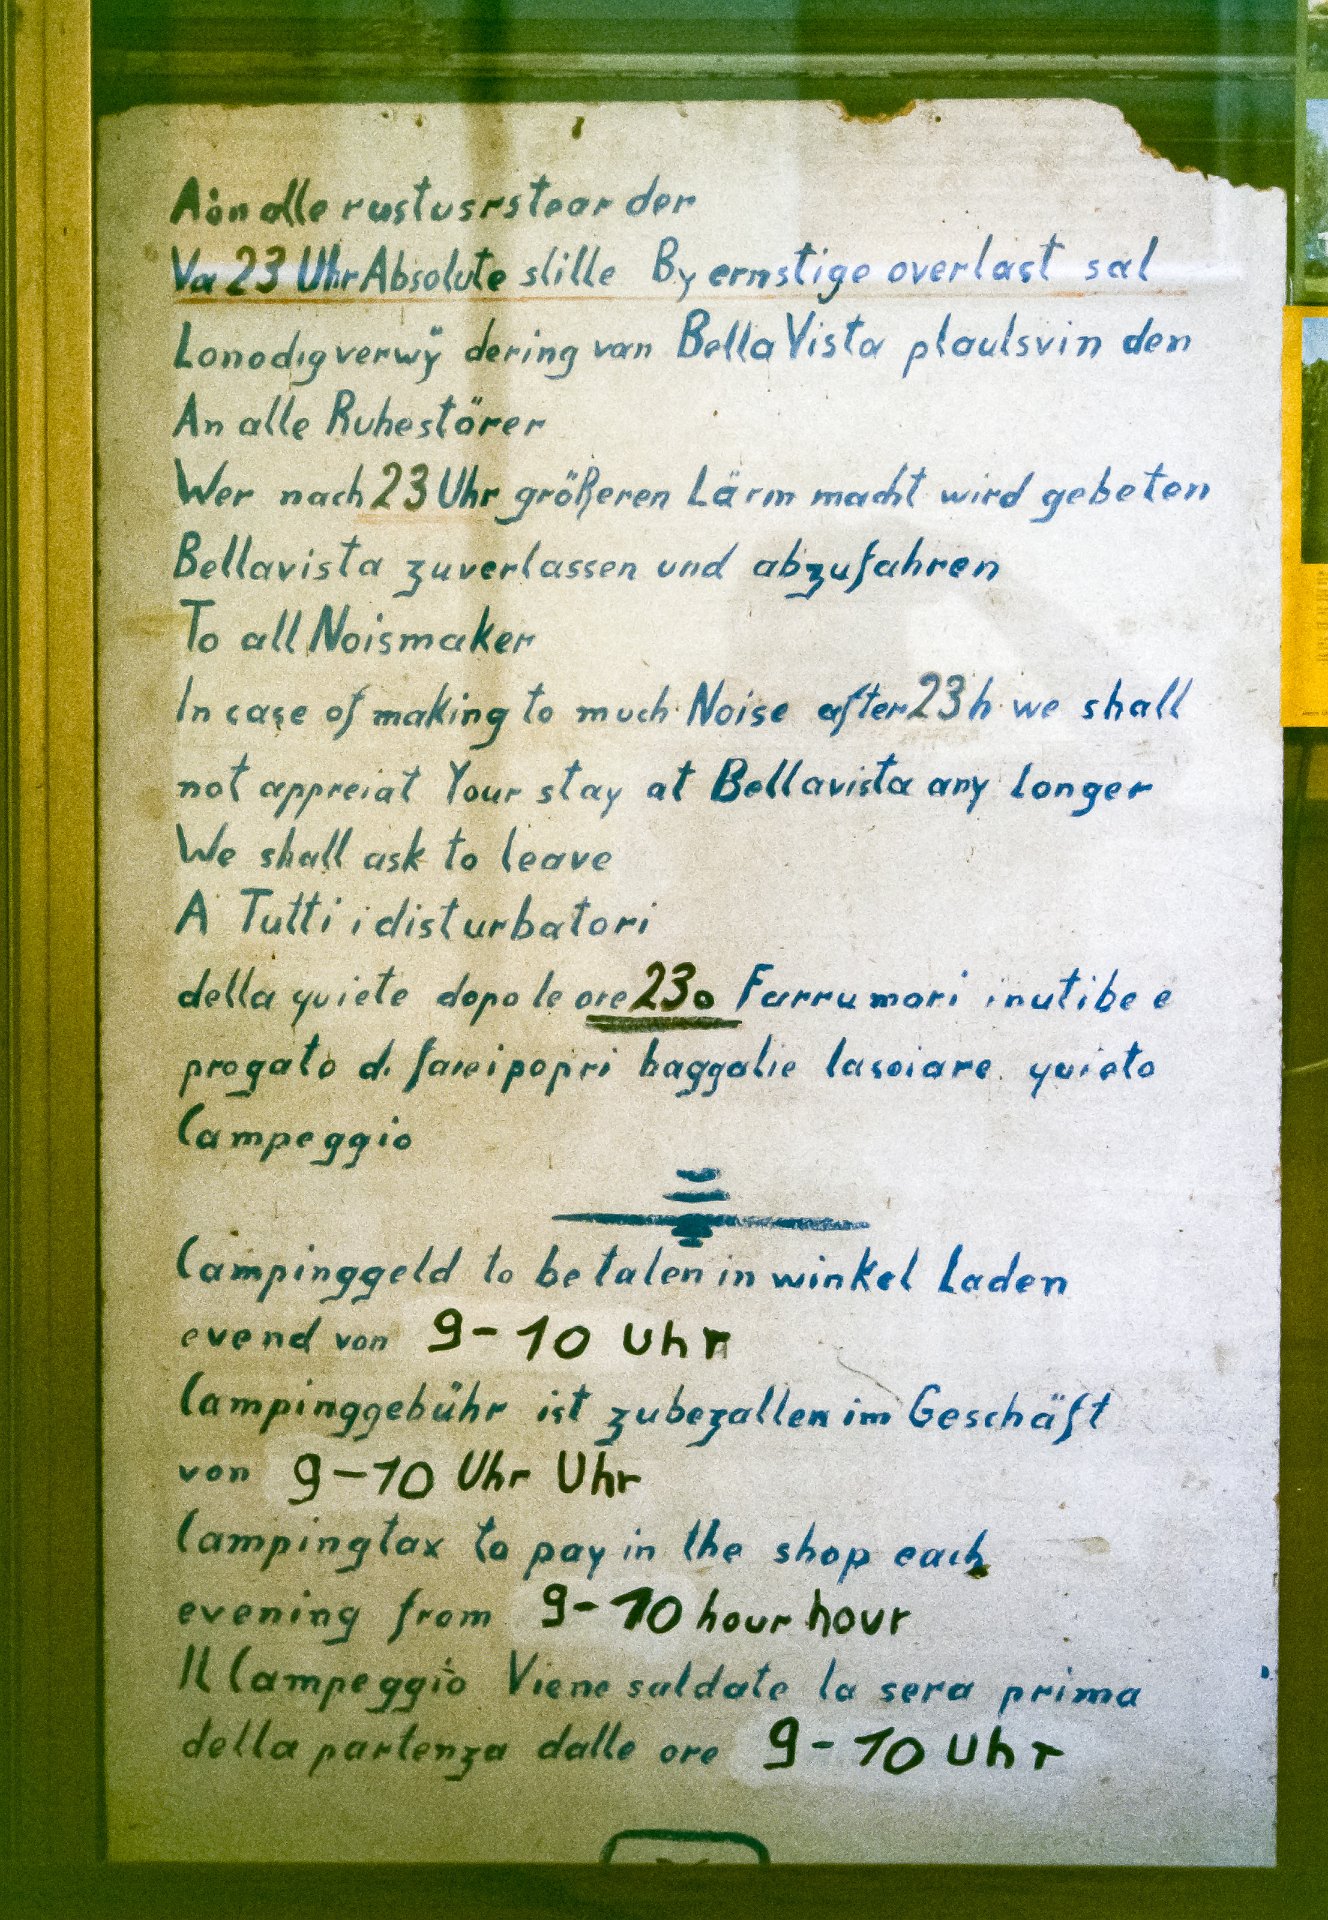 Aon alle rustusrstear der
Va 23 Uhr Absolute stille By ernstige overlast sal
Lonodig verwÿ dering van Bella Vista plaulsvin den
An alle Ruhestörer
Wer nach 23 Uhr größeren Lärm macht wird gebeten
Bellavista zuverlassen und abzufahren
To all Noismaker
In case of making to much Noise after 23 h we shall
not appreiat Your stay at Bellavista any longer
We shall ask to leave
A Tutti i disturbatori
della quiete dopo le ore 23o Farrumori inutibe e
progato di fareipopri baggalie lasciare quieto
Campeggio
Campinggeld to betalen in winkel Laden
evend von 9-10 Uhr
Campinggebühr ist zubezallen im Geschäft
von 9-10 Uhr Uhr
Campingtax to pay in the shop each
evening from 9-10 hour hour
Il Campeggio Viene saldato la sera prima
della partenza dalle ore 9-10 Uhr